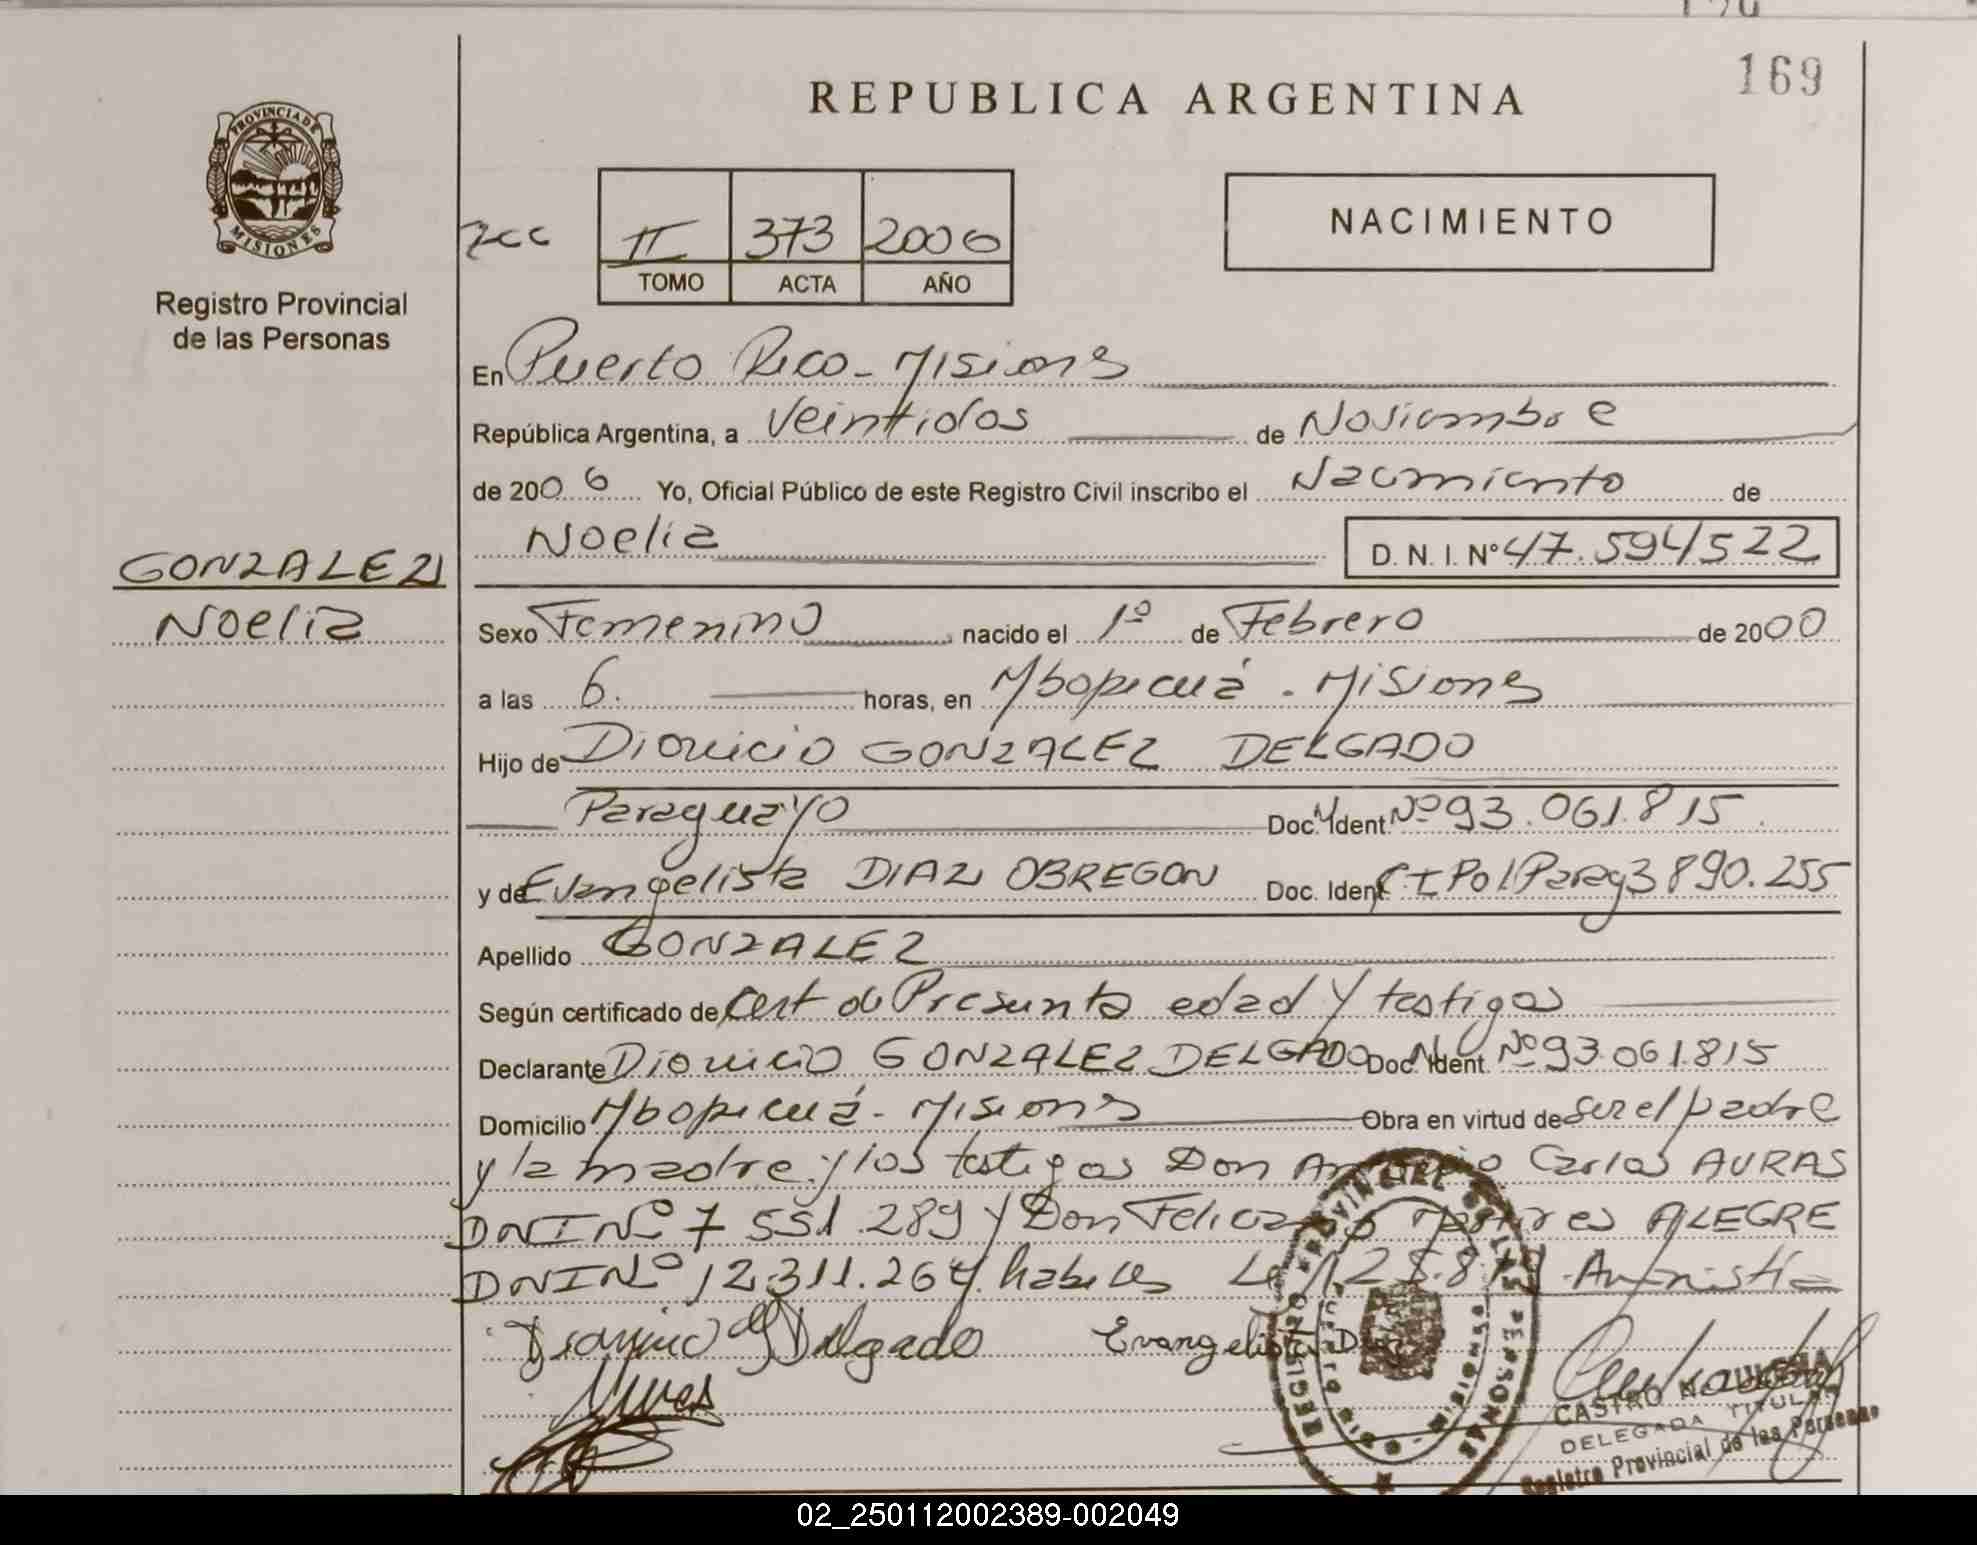 169
REPUBLICA ARGENTINA
PROVINCIA DE
MISIONES
Registro Provincial
de las Personas
II 373 2006
TOMO ACTA AÑO
NACIMIENTO
En Puerto Rico - Misiones
República Argentina, a Veintidos de Noviembre
de 2006 Yo, Oficial Público de este Registro Civil inscribo el Nacimiento de
Noelia D. N. I. N° 47.594522
GONZALEZ
Noelia
Sexo Femenino nacido el 1º de Febrero de 2000
a las 6. horas, en Mbopicuá - Misiones
Hijo de Dionicio GONZALEZ DELGADO
Paraguayo Doc. Ident Nº 93.061.815
y de Evangelista DIAZ OBREGON Doc. Ident C.I Pol Parag 3890.255
Apellido GONZALEZ
Según certificado de Cert de Presunta edad y testigos
Declarante Dionicio GONZALEZ DELGADO Doc. Ident. Nº 93.061.815
Domicilio Mbopicuá - Misiones Obra en virtud de ser el padre
y la madre y los testigos Don Carlos AURAS
DNI Nº 7 551.289 y Don Feliciano ALEGRE
DNI Nº 12.311.264 habiles
Delgado Evangelista
REGISTRO PROVINCIAL DE LAS PERSONAS
CASTRO
DELEGADA TITULAR
Registro Provincial de las Personas
02_250112002389-002049